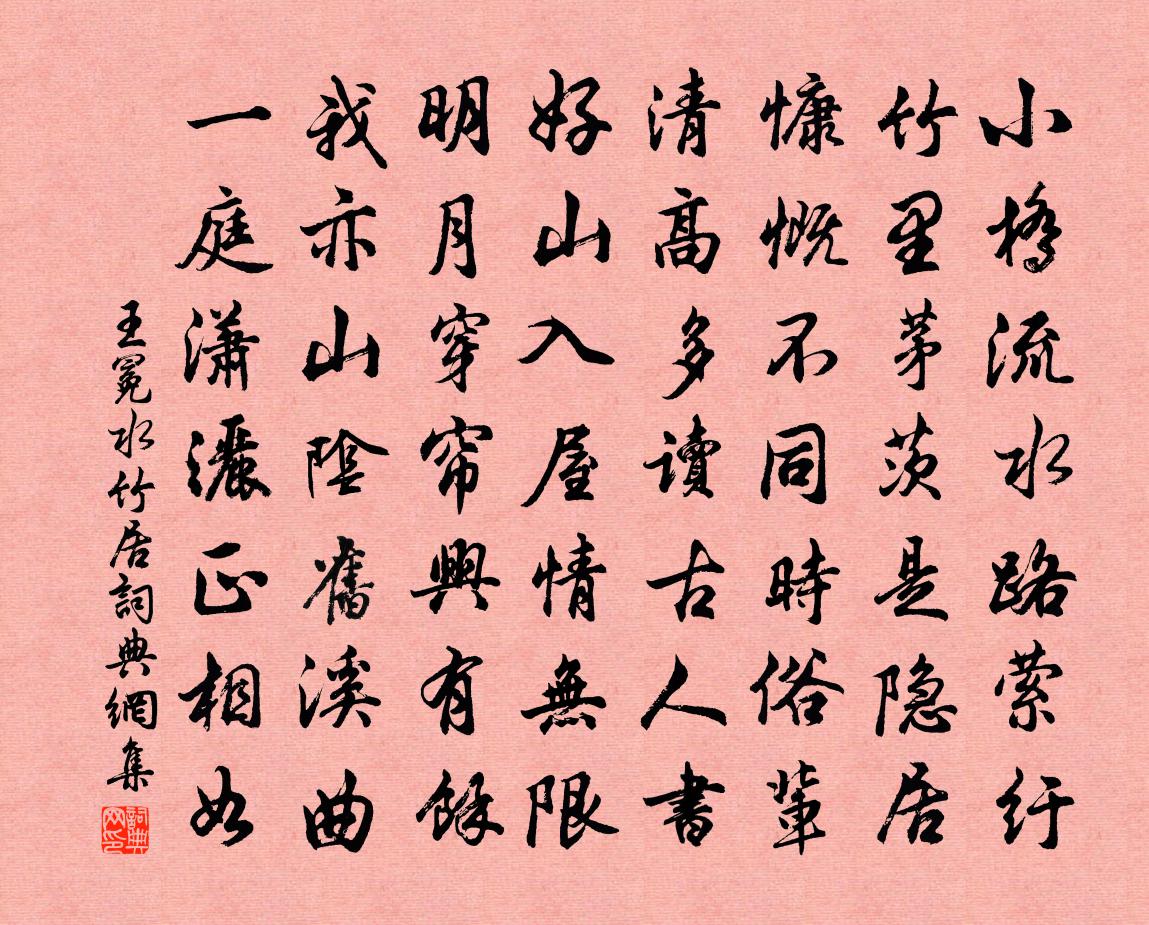 小橋流水路縈紆
竹里茅茨是隐居
慷慨不同時俗輩
清高多讀古人書
好山入屋情無限
明月穿帘興有餘
我亦山陰舊溪曲
一庭瀟灑正相如
王冕水竹居詞典網集
詞典网印